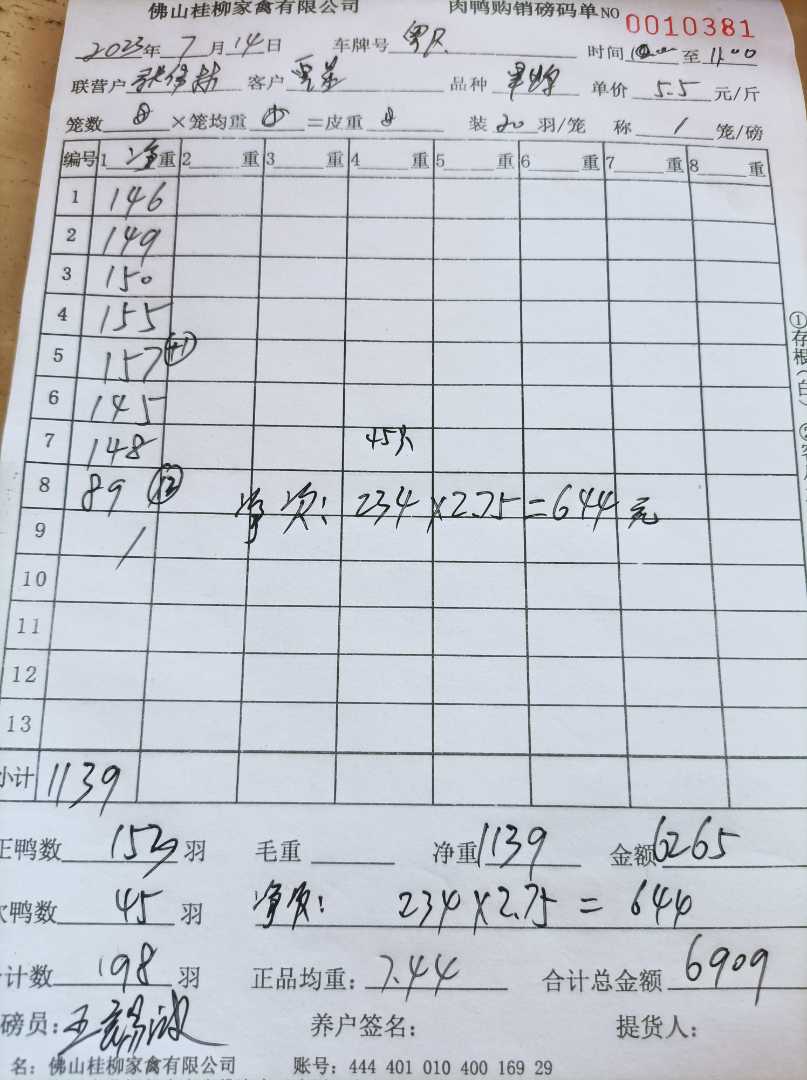 佛山桂柳家禽有限公司 肉鸭购销磅码单NO 0010381
2023年7月14日 车牌号 时间 至 11:00
联营户 客户 品种 单价 5.5 元/斤
笼数 ×笼均重 =皮重 装 20 羽/笼 称 1 笼/磅
编号 1 净重 2 重 3 重 4 重 5 重 6 重 7 重 8 重
1 146
2 149
3 150
4 155
5 157 +1
6 145
7 148 45只
8 89 12 净次: 234×2.75=644元
9 /
10
11
12
13
小计 1139
正鸭数 153 羽 毛重 净重 1139 金额 6265
次鸭数 45 羽 净次: 234×2.75=644
合计数 198 羽 正品均重: 7.44 合计总金额 6909
磅员: 养户签名: 提货人:
名: 佛山桂柳家禽有限公司 账号: 444 401 010 400 169 29
①存根(白)